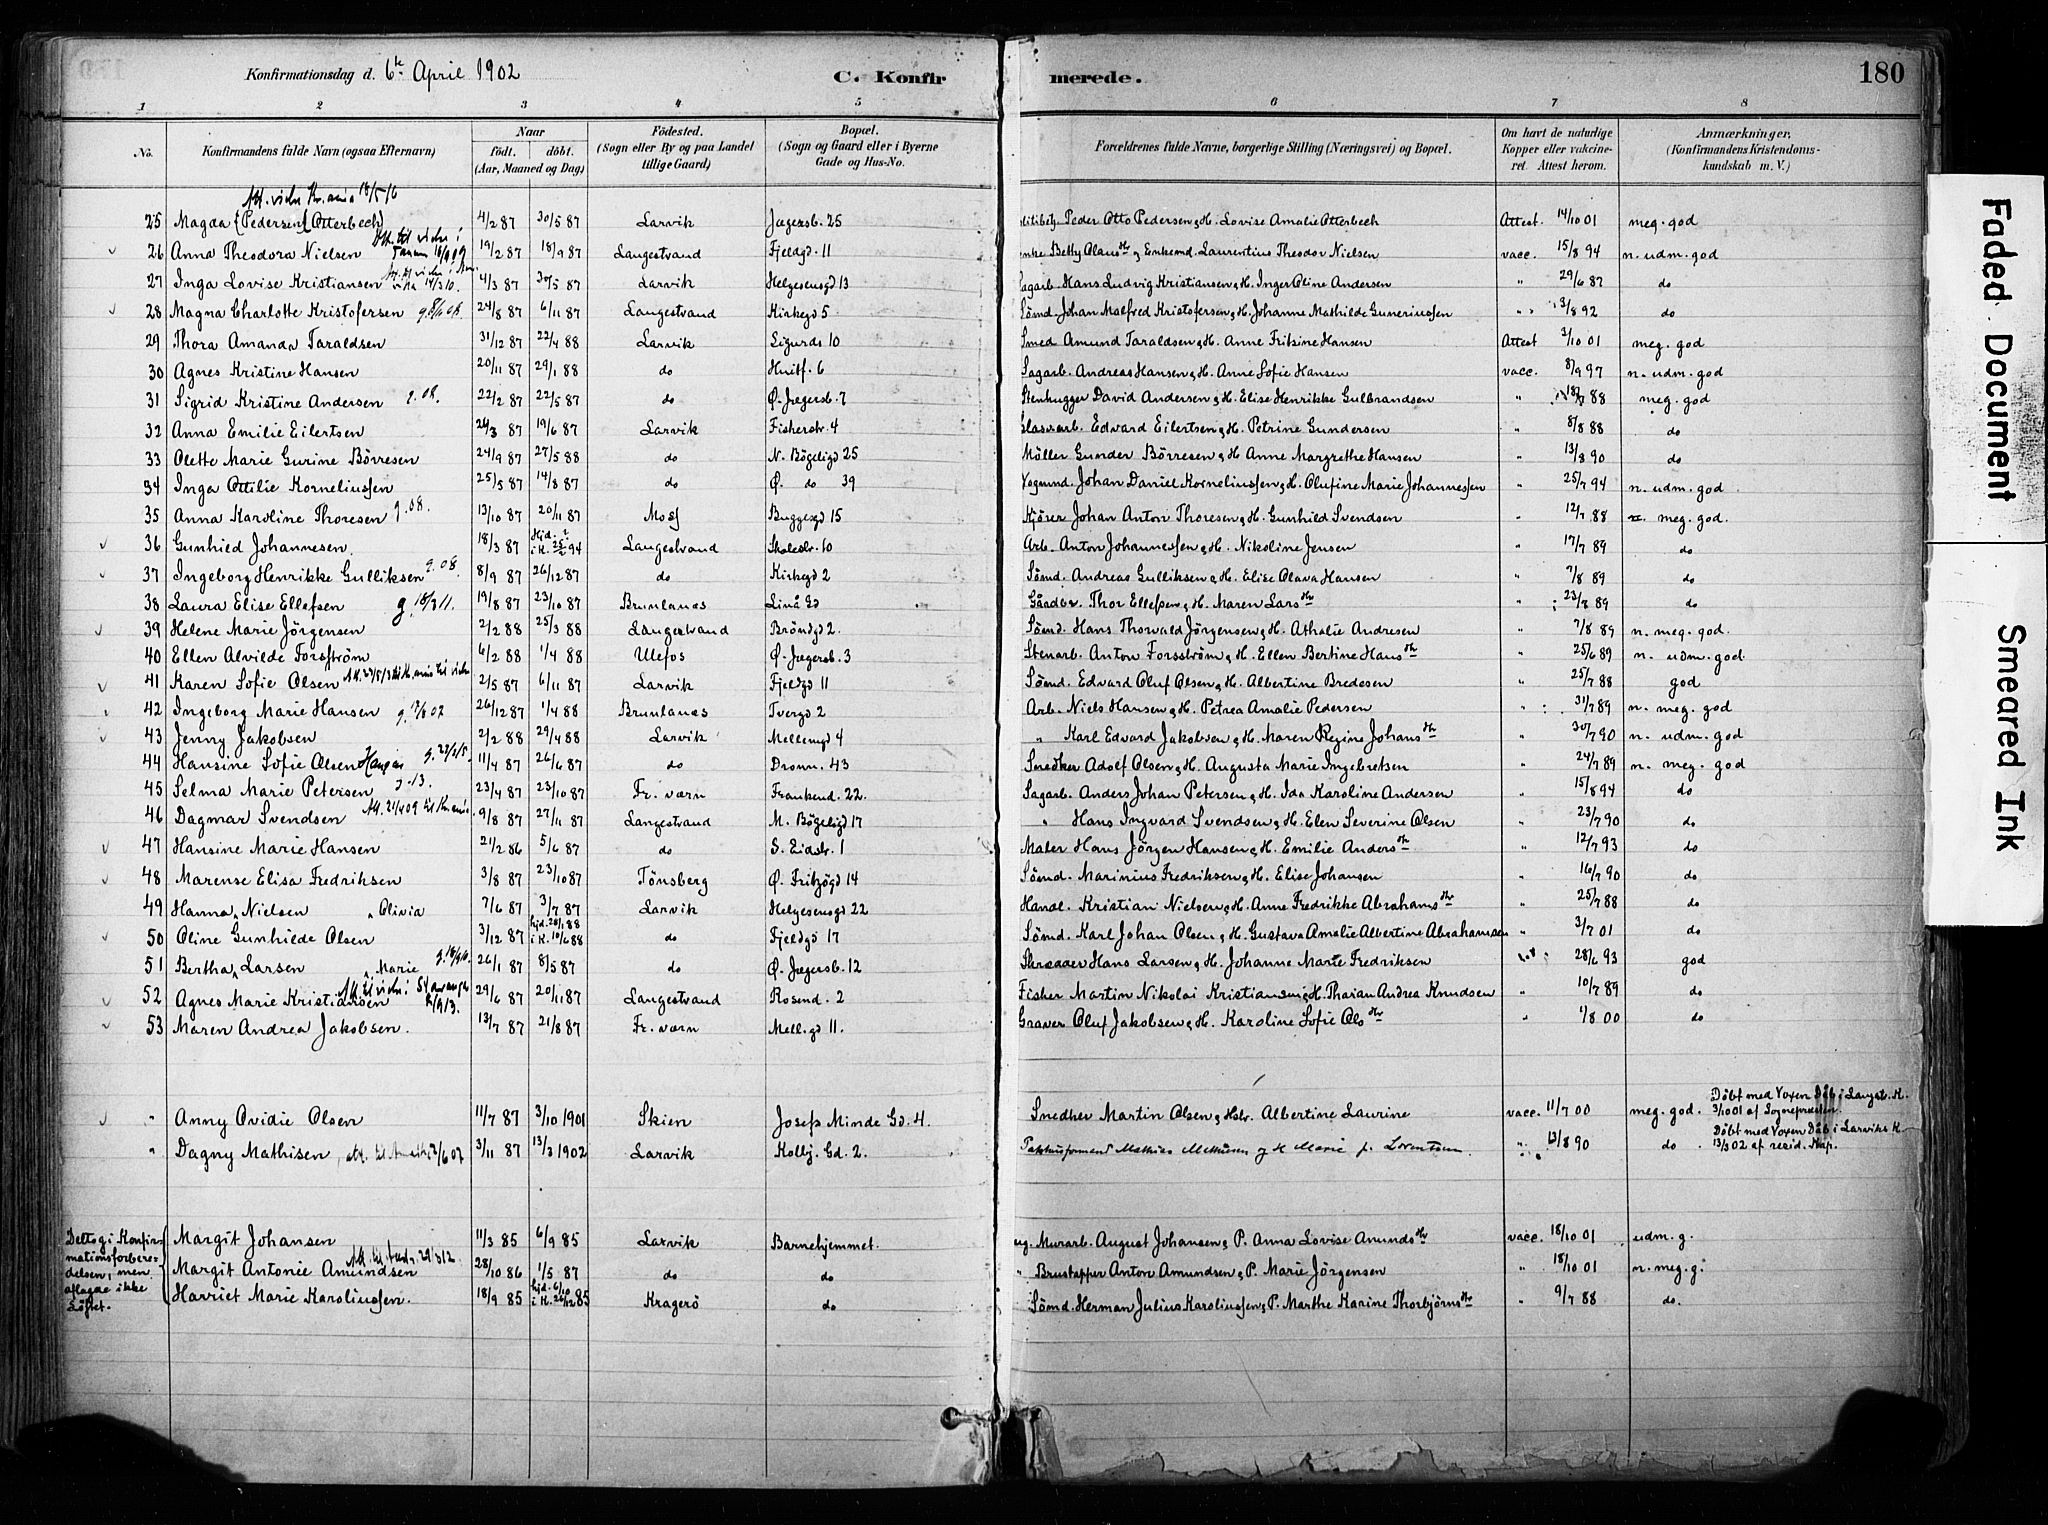 Konfirmationsdag d. 6te April 1902
C. Konfirmerede.
180
1 2 3 4 5 6 7 8
No. Konfirmandens fulde Navn (ogsaa Efternavn) Naar født. døbt. (Aar, Maaned og Dag) Fødested. (Sogn eller By og paa Landet tillige Gaard) Bopæl. (Sogn og Gaard eller i Byerne Gade og Hus-No. Forældrenes fulde Navne, borgerlige Stilling (Næringsvei) og Bopæl. Om havt de naturlige Kopper eller vakcineret. Attest herom. Anmærkninger. (Konfirmandens Kristendomskundskab m. V.)
25 Magda (Pedersen) Otterbech 4/2 87 30/5 87 Larvik Jægersb. 25 Peder Otto Pedersen & H. Lovise Amalie Otterbech Attest 14/10 01 meg. god
26 Anna Theodora Nielsen 19/2 87 18/9 87 Langestrand Fjeldgd. 11 Betty Olausdtr & Enkemd. Laurentius Theodor Nielsen vacc. 15/8 94 n. udm. god
27 Inga Lovise Kristiansen 4/3 87 30/5 87 Larvik Helgesensgd 13 Sagarb. Hans Ludvig Kristiansen & H. Inger Oline Andersen " 29/6 87 do
28 Magna Charlotte Kristofersen 24/8 87 6/11 87 Langestrand Kirkegd 5 Sömd. Johan Malfred Kristofersen & H. Johanne Mathilde Guneriussen " 3/8 92 do
29 Thora Amanda Taraldsen 31/12 87 22/4 88 Larvik Sigurds 10 Smed Amund Taraldsen & H. Anne Fritzine Hansen Attest 3/10 01 meg. god
30 Agnes Kristine Hansen 20/11 87 29/1 88 do Huitf. 6 Sagarb. Andreas Hansen & H. Anne Sofie Hansen vacc. 8/9 97 n. udm. god
31 Sigrid Kristine Andersen g. 08. 22/2 87 22/5 87 do Ø. Jægersb. 7 Stenhugger David Andersen & H. Elise Henrikke Gulbrandsen " 88 meg. god
32 Anna Emilie Eilertsen 24/3 87 19/6 87 Larvik Fisherstr. 4 Glasarb. Edvard Eilertsen & H. Petrine Gundersen " 8/8 88 do
33 Olette Marie Gurine Börresen 24/9 87 27/5 88 do N. Bögeligd 25 Möller Gunder Börresen & H Anne Margrethe Hansen " 13/8 90 do
34 Inga Ottilie Korneliussen 25/5 87 14/8 87 do Ø. do 39 Vognmd. Johan Daniel Korneliussen & H. Olufine Marie Johannessen " 25/7 94 n. udm. god
35 Anna Karoline Thoresen g. 08. 13/10 87 20/11 87 Moss Buggesgd 15 Kjörer Johan Anton Thoresen & H. Gunhild Svendsen " 12/7 88 meg. god.
36 Gunhild Johannesen. 18/3 87 Hjd. ? i K. 25/2 94 Langestrand Skolestr. 10 Arb. Anton Johannessen & H. Nikoline Jensen " 17/7 89 do
37 Ingeborg Henrikke Gulliksen g. 08. 8/9 87 26/12 87 do Kirkegd 2 Sömd. Andreas Gulliksen & H. Elise Olava Hansen " 7/8 89 do
38 Laura Elise Ellefsen g. 18/3 11. 19/8 87 23/10 87 Brunlanæs Linå Gd Gåadbr. Thor Ellefsen & H. Maren Larsdtr " 23/7 89 do
39 Helene Marie Jörgensen 2/2 88 25/3 88 Langestrand Bröndgd 2. Sömd. Hans Thorvald Jörgensen & H. Athalie Andresen " 7/8 89 n. meg. god.
40 Ellen Alvilde Forsström 6/2 88 1/4 88 Ulefos Ø. Jægersb. 3 Stenarb. Anton Forsström & H. Ellen Bertine Hansdtr " 25/6 89 n. udm. god
41 Karen Sofie Olsen 2/5 87 6/11 87 Larvik Fjeldgd 11 Sömd. Edvard Oluf Olsen & H. Albertine Bredesen " 25/7 88 god
42 Ingeborg Marie Hansen 26/12 87 1/4 88 Brunlanæs Tvergd 2 Arb. Niels Hansen & H. Petrea Amalie Pedersen " 31/7 89 n. meg. god
43 Jenny Jakobsen 2/2 88 29/4 88 Larvik Mellemgd 4 " Karl Edvard Jakobsen & H. Maren Regine Johansdtr " 30/7 90 n. udm. god
44 Hansine Sofie Olsen Haugen 11/4 87 26/6 87 do Dronn. 43 Snedker Adolf Olsen & H. Augusta Marie Ingebretsen " 24/7 89 n. meg. god
45 Selma Marie Petersen g. 13. 23/4 87 23/10 87 Fr. værn Frankend. 22. Sagarb. Anders Johan Petersen & H. Ida Karoline Andersen " 15/8 94 do
46 Dagmar Svendsen 9/8 87 27/11 87 Langestrand M. Bögeligd 17 " Hans Ingvard Svendsen & H. Elen Severine Olsen " 23/7 90 do
47 Hansine Marie Hansen 21/2 86 5/6 87 do S. Eidstr. 1 Maler Hans Jörgen Hansen & H. Emilie Andersdtr " 12/7 93 do
48 Marense Elisa Fredriksen 3/8 87 23/10 87 Tönsberg Ø. Fritzögd 14 Sömd. Marinius Fredriksen & H. Elise Johansen " 16/7 90 do
49 Hanna Nielsen Olivia 7/6 87 3/7 87 Larvik Helgesensgd 22 Handl. Kristian Nielsen & H. Anne Fredrikke Abrahamsdtr " 25/7 88 do
50 Oline Gunhilde Olsen 3/12 87 hjd. 28/1 88 i K. 10/6 88 do Fjeldgd 17 Sömd. Karl Johan Olsen & H. Gustava Amalie Albertine Abrahamsen " 3/7 01 do
51 Bertha Larsen Marie 26/1 87 8/5 87 do Ø. Jægersb. 12 Skrædder Hans Larsen & H. Johanne Marie Fredriksen 28/6 93 god
52 Agnes Marie Kristiansen 29/6 87 20/11 87 Langestrand Rosend. 2 Fisher Martin Nikolai Kristiansen & H. Tharan Andrea Knudsen " 10/7 89 do
53 Maren Andrea Jakobsen. 13/7 87 21/8 87 Fr. værn Mell. gd 11. Graver Oluf Jakobsen & H. Karoline Sofie Olsdtr " 1/8 00 do
" Anny Ovidie Olsen 11/7 87 3/10 1901 Skien Josefs Minde Gd. 4. Snedker Martin Olsen & Hstr. Albertine Laurine vacc. 11/7 00 meg. god. Döbt med Voxen Dåb i Langestr. K. 3/10 01 af Sognepræsten.
" Dagny Mathisen 3/11 87 13/3 1902 Larvik Kolbj. Gd. 2. Pakhusformand Mathias Mathisen og H Marie f. Lorentsen. " 13/8 90 do. Döbt med Voxen Dåb i Larviks K. 13/3 02 af resid. Kap.
Deltog i Konfirmationsforberedelsen, men aflagde ikke Löftet.
Margit Johansen 11/3 85 6/9 85 Larvik Barnehjemmet. Murarb. August Johansen & P. Anna Lovise Amundsdtr vacc. 18/10 01 udm. g.
Margit Antonie Amundsen 28/10 86 1/5 87 do do " Brustapper Anton Amundsen & P. Marie Jörgensen " 18/10 01 n. meg. g.
Harriet Marie Karoliussen. 18/9 85 hjd. 6/10 i K. 26/12 85 Kragerö do Sömd. Herman Julius Karoliussen & P. Marthe Karine Thorbjörnsdtr " 9/7 88 do.
Faded Document
Smeared Ink